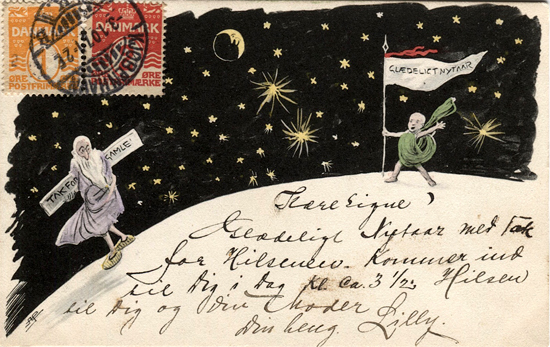 DANMARK
DANMARK
ØRE
ØRE
POSTFRIM
MÆRKE
KJØBENHAVN
GLÆDELIGT NYTAAR
TAK FOR
GAMLE!
Kære Signe!
Glædeligt Nytaar med Tak
for Hilsenen. Kommer ind
til Dig i Dag Kl. Ca. 3 1/2, Hilsen
til Dig og din Moder
Din heng. Lilly.